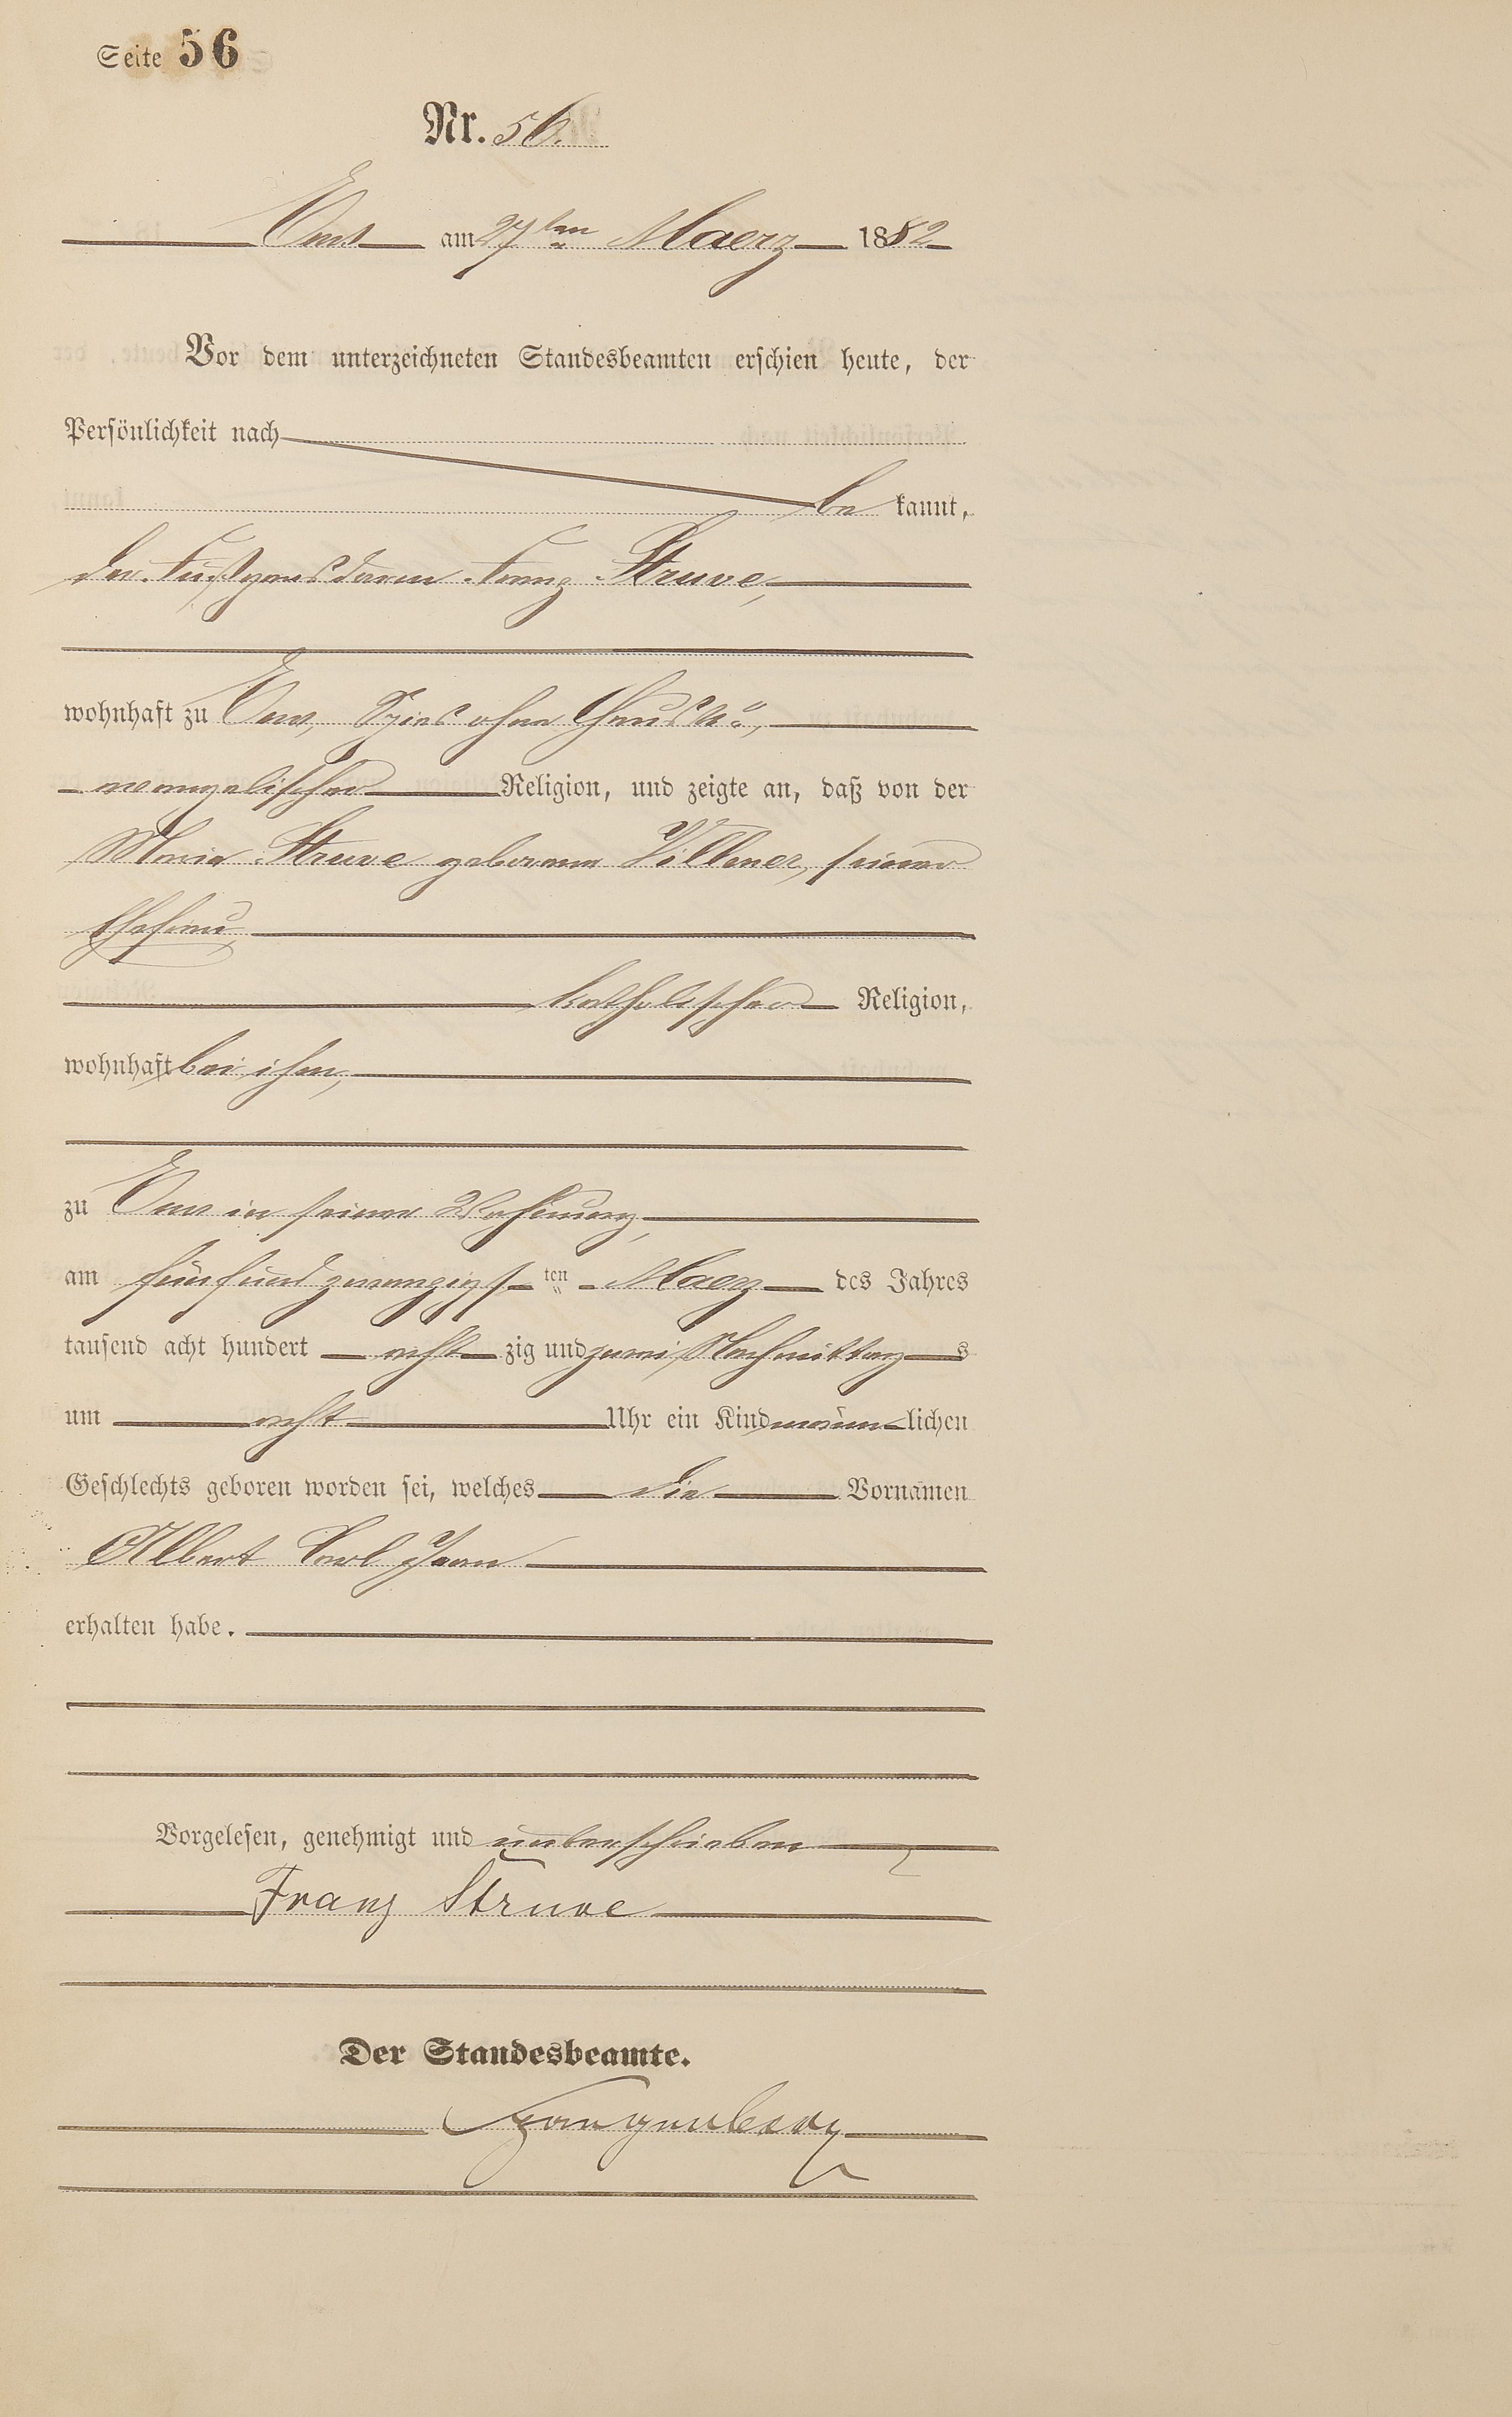 Seite 56
Nr. 56.
Ems am 27ten Maerz 1882
Vor dem unterzeichneten Standesbeamten erschien heute, der
Persönlichkeit nach
be kannt,
der Fußgensdarm Franz Struve,
wohnhaft zu Ems, Spies ohne Haus No,
evangelischer Religion, und zeigte an, daß von der
Maria Struve geborenen Villmer, seiner
Ehefrau,
katholischer Religion,
wohnhaft bei ihm,
zu Ems in seiner Wohnung,
am fünfundzwanzigsten Maerz des Jahres
tausend acht hundert acht zig und zwei Nachmittags
um acht Uhr ein Kind männlichen
Geschlechts geboren worden sei, welches die Vornamen
Albert Carl Jean
erhalten habe.
Vorgelesen, genehmigt und unterschrieben
Franz Struve
Der Standesbeamte.